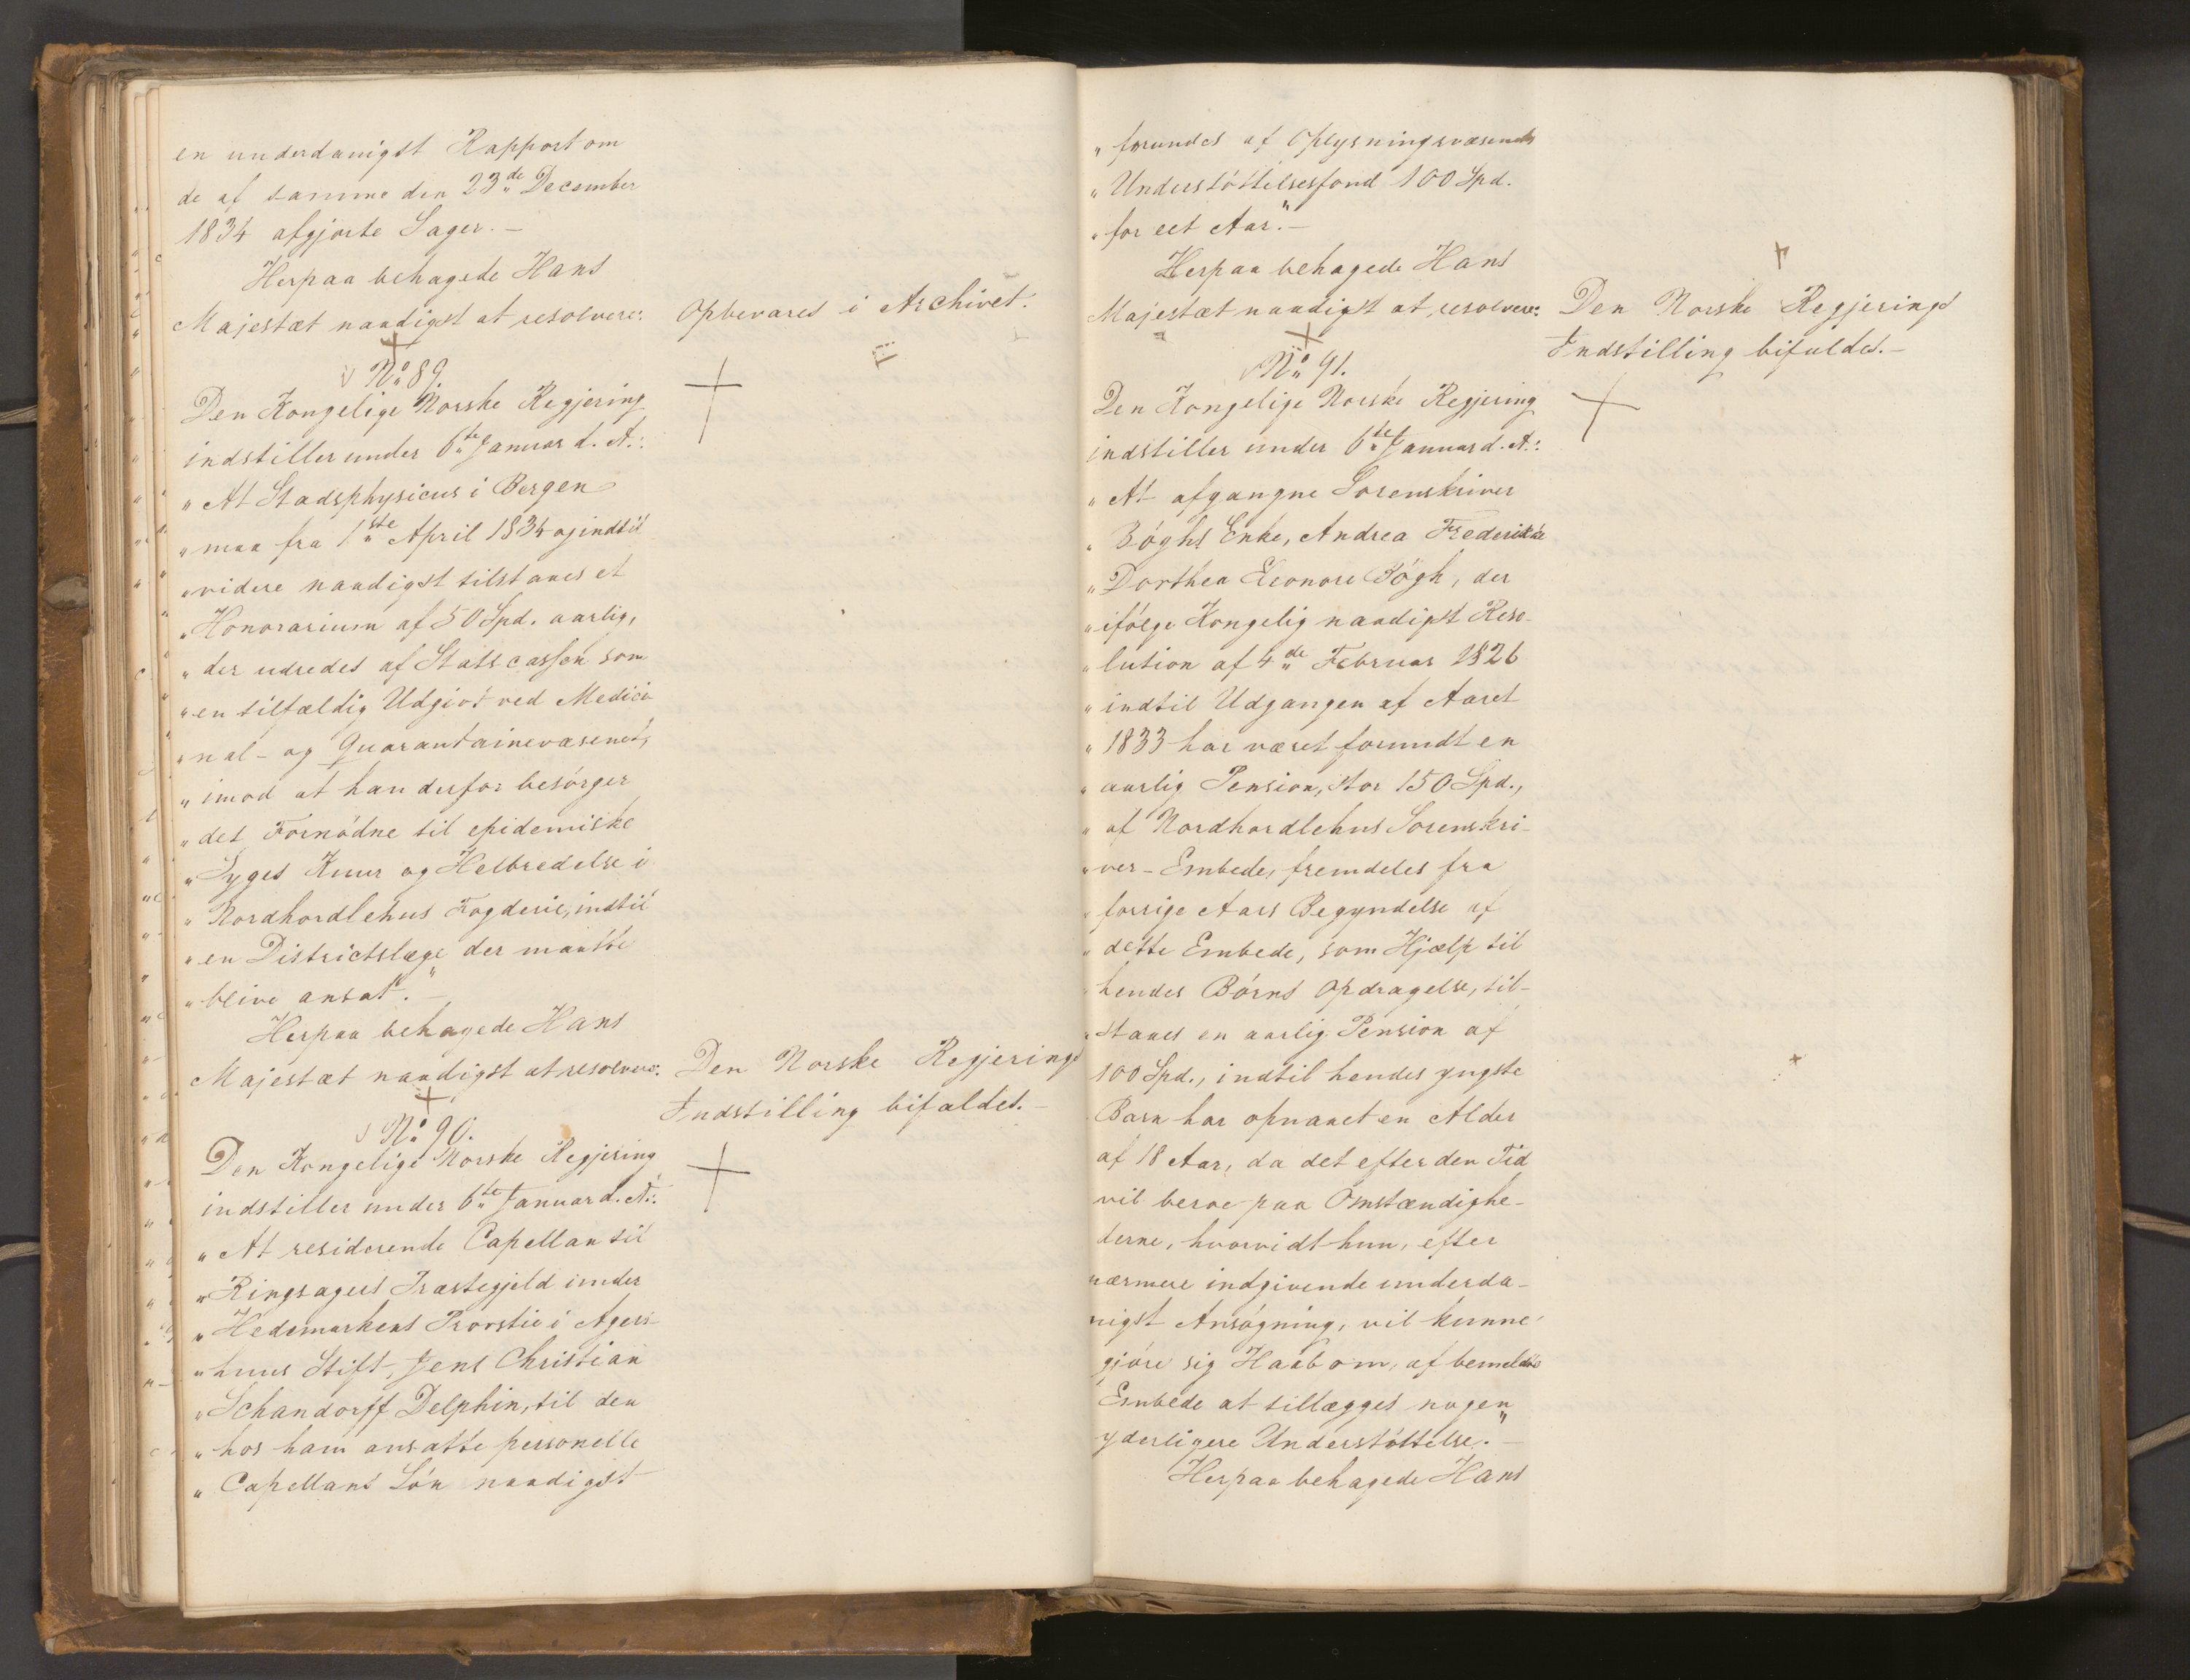 en underdanigst Rapport om
de af samme den 23de December
1834 afgjorte Sager.-
Herpaa behagede Hans
Majestæt naadigst at resolvere: Opbevares i Archivet.
No 89.
Den Kongelige Norske Regjering
indstiller under 6te Januar d. A.:
"At Stadsphysicus i Bergen
"maa fra 1ste April 1834 og indtil
"videre naadigst tilstaaes et
"Honorarium af 50 Spd. aarlig,
"der udredes af Statscassen som
"en tilfældig Udgivt ved Medici-
"nal- og Quarantainevæsenet,
"imod at han derfor besörger
"det Fornödne til epidemiske
"Syges Kuur og Helbredelse i
"Nordhordlehns Fogderie, indtil
"en Districtslæge der maatte
"blive ansat."-
Herpaa behagede Hans
Majestæt naadigst at resolvere: Den Norske Regjerings
Indstilling bifaldes.-
No 90.
Den Kongelige Norske Regjering
indstiller under 6te Januar d. A.:
"At residerende Capellan til
"Ringsagers Præstegjeld under
"Hedemarkens Provstie i Agers-
"huus Stift, Jens Christian
"Schandorff Delphin, til den
"hos ham ansatte personelle
"Capellans Lön naadigst
"forundes af Oplysningsvæsenets
"Understöttelsesfond 100 Spd.
"for eet Aar."-
Herpaa behagede Hans
Majestæt naadigst at resolvere: Den Norske Regjerings
Indstilling bifaldes.-
No 91.
Den Kongelige Norske Regjering
indstiller under 6te Januar d. A.:
"At afgangne Sorenskriver
"Böghs Enke, Andrea Frederikke
"Dorthea Eleonore Bögh, der
"ifölge Kongelig naadigst Reso-
"lution af 4de Februar 1826
"indtil Udgangen af Aaret
"1833 har været forundt en
"aarlig Pension, stor 150 Spd.,
"af Nordhordlehns Sorenskri-
"ver-Embede, fremdeles fra
"forrige Aars Begyndelse af
"dette Embede, som Hjælp til
"hendes Börns Opdragelse, til-
"staaes en aarlig Pension af
100 Spd., indtil hendes yngste
Barn har opnaaet en Alder
af 18 Aar, da det efter den Tid
vil beroe paa Omstændighe-
derne, hvorvidt hun, efter
nærmere indgivende underda-
nigst Ansögning, vil kunne
gjöre sig Haab om, af bemeldte
Embede at tillægges nogen
yderligere Understöttelse."-
Herpaa behagede Hans